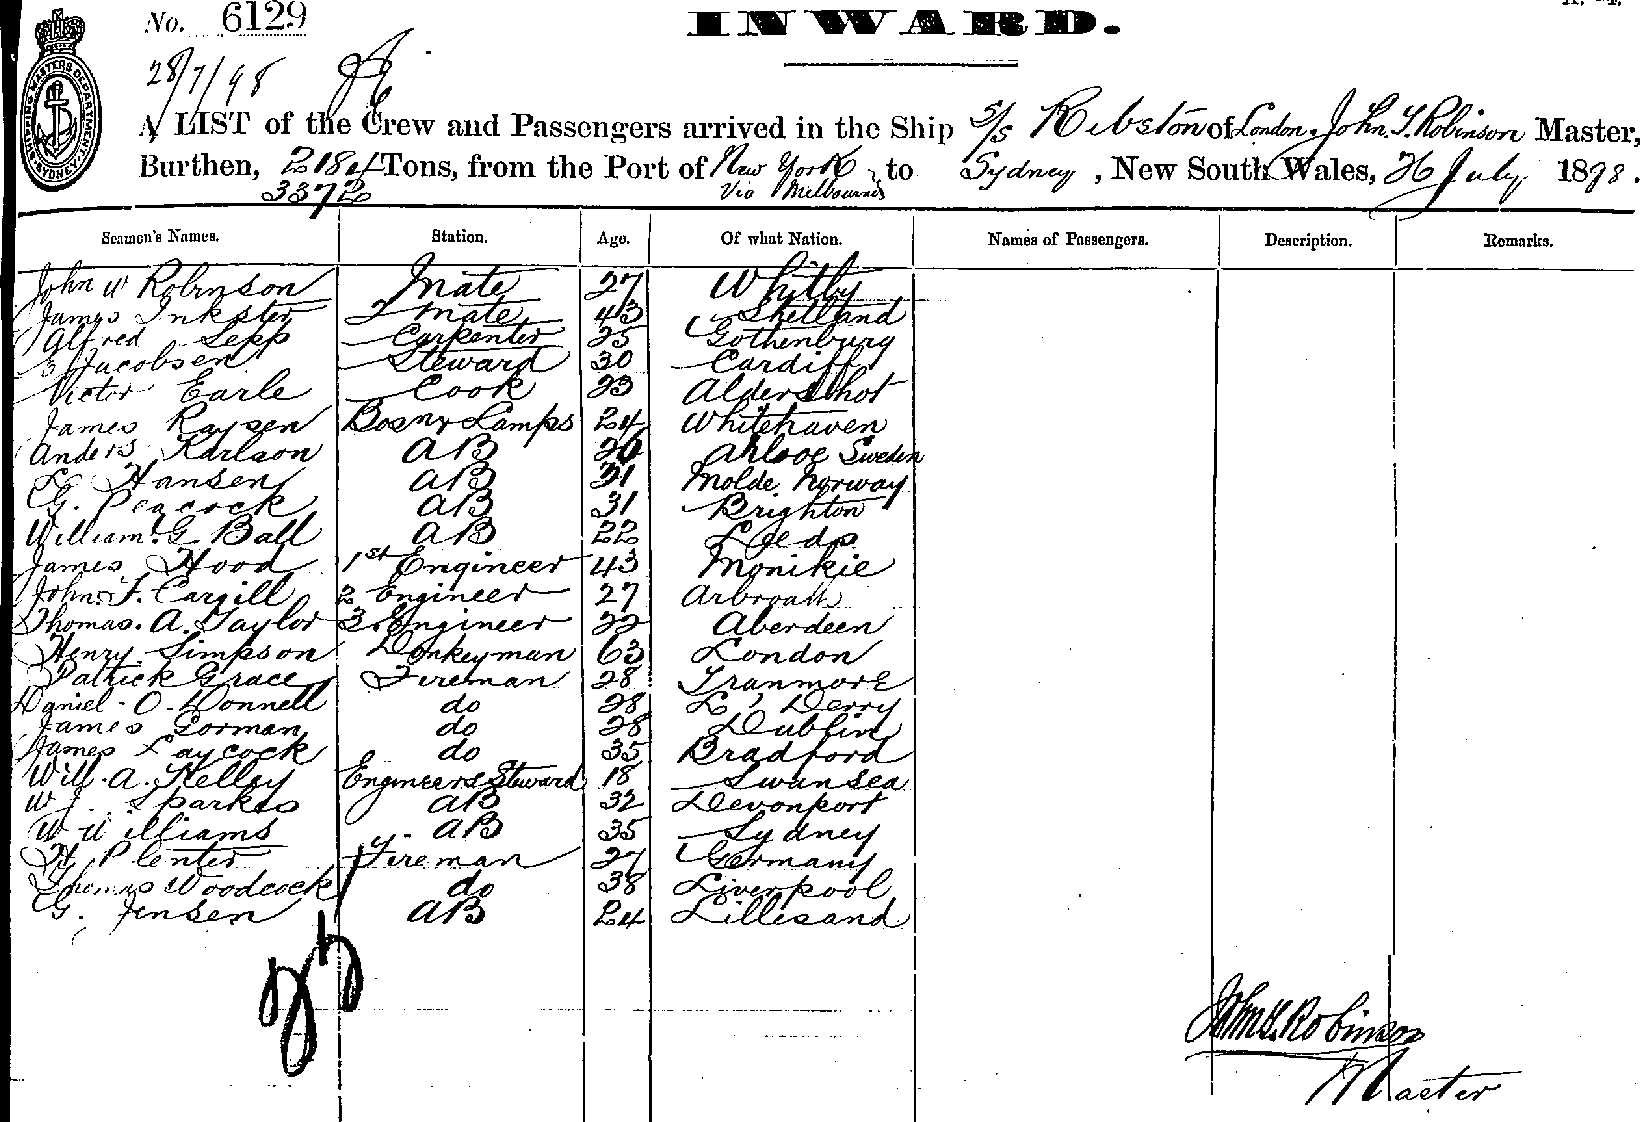 No. 6129
INWARD.
28/7/98
A LIST of the Crew and Passengers arrived in the Ship S/S Ribston of London, John. S. Robinson Master,
Burthen, 2184 Tons, from the Port of New York to Sydney, New South Wales, 26 July 1898.
3372 Via Melbourne
Seamen's Names. Station. Age. Of what Nation. Names of Passengers. Description. Remarks.
John W Robinson Mate 27 Whitby
James Inkster 2 Mate 43 Shetland
Alfred Sepp Carpenter 25 Gothenburg
Jacobsen Steward 30 Cardiff
Victor Earle Cook 23 Aldershot
James Raysen Bosn & Lamps 24 Whitehaven
Anders Karlson AB 26 Sweden
L Hansen AB 31 Molde Norway
G. Peacock AB 31 Brighton
William. G. Ball AB 22 Leeds
James Hood 1st Engineer 43 Monikie
John. F. Cargill 2 Engineer 27 Arbroath
Thomas. A. Taylor 3 Engineer 22 Aberdeen
Henry Simpson Donkeyman 63 London
Patrick Grace Fireman 28 Tranmore
Daniel O. Donnell do 28 L' Derry
James Gorman do 28 Dublin
James Laycock do 35 Bradford
Will. A. Kelley Engineers Steward 18 Swansea
W J. Sparkes AB 32 Devonport
W Williams AB 35 Sydney
H Plenter Fireman 27 Germany
Thomas Woodcock do 38 Liverpool
G. Jensen AB 24 Lillesand
John S. Robinson
Master